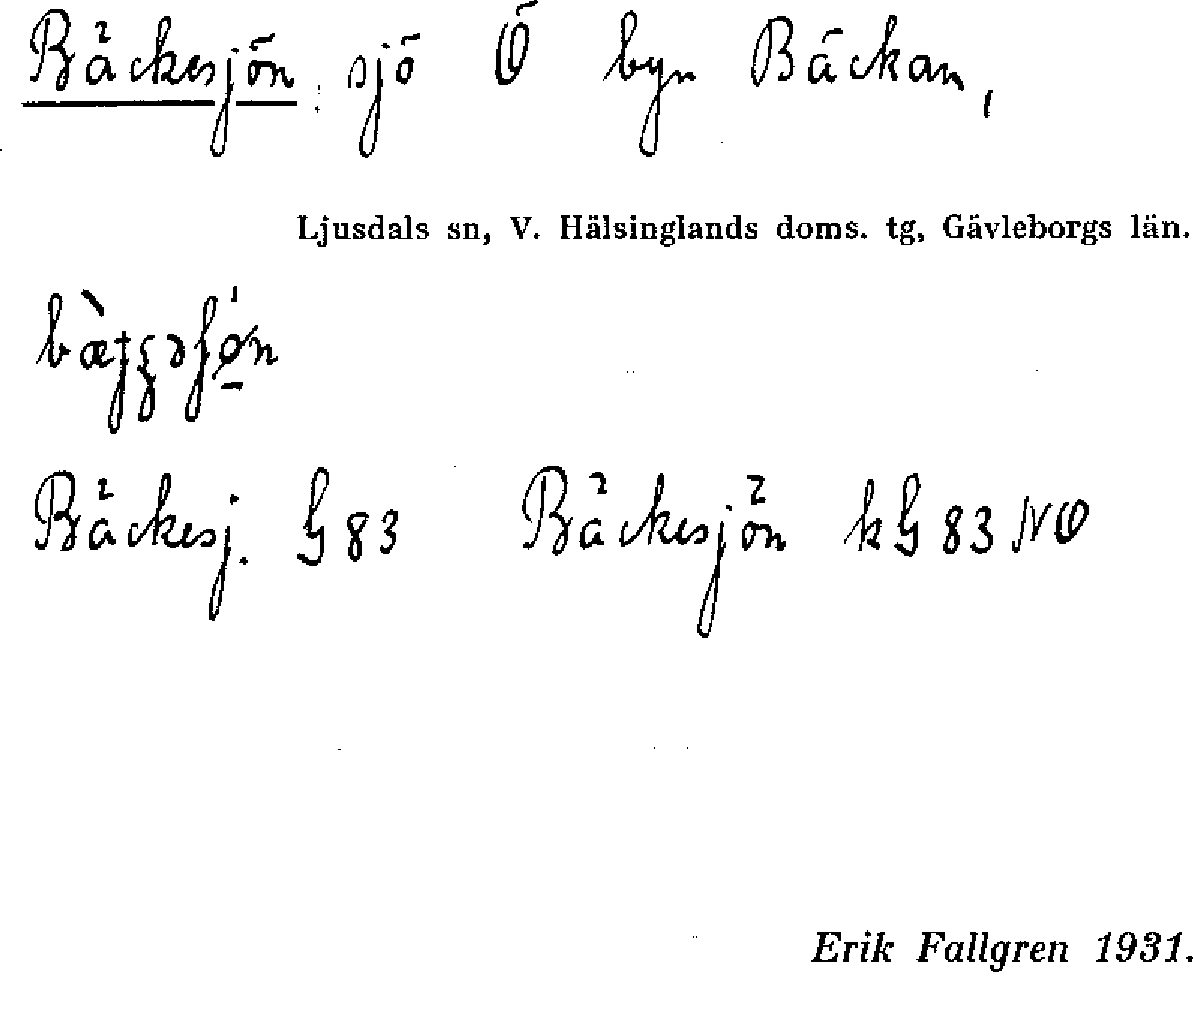 Bäckesjön : sjö Ö byn Bäckan,
Ljusdals sn, V. Hälsinglands doms. tg, Gävleborgs län.
Bäckesj. G 83 Bäckesjön kG 83 NO
Erik Fallgren 1931.